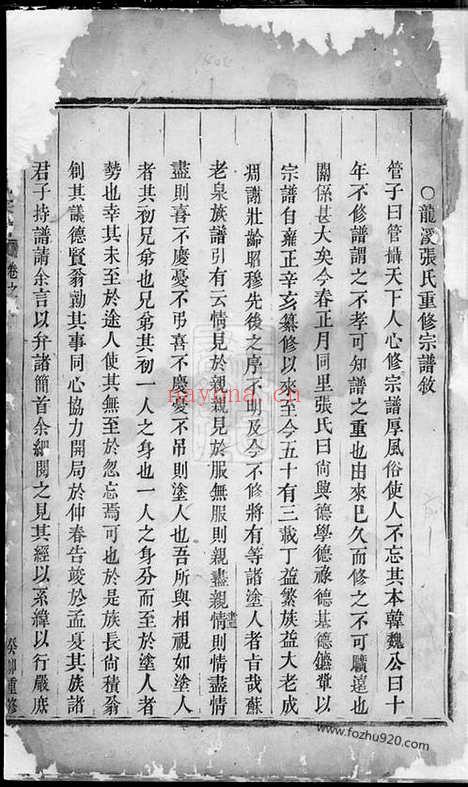 ○龍溪張氏重修宗譜敘
管子曰管攝天下人心修宗譜厚風俗使人不忘其本韓魏公曰十
年不修譜謂之不孝可知譜之重也由來已久而修之不可曠遠也
關係甚大矣今春正月同里張氏曰尚興德學德祿德基德鑣輩以
宗譜自雍正辛亥纂修以來至今五十有三載丁益繁族益大老成
凋謝壯齡昭穆先後之序不明及今不修將有等諸塗人者旨哉蘇
老泉族譜引有云情見於親親見於服無服則親盡親盡則情盡情
盡則喜不慶憂不弔喜不慶憂不吊則塗人也吾所與相視如塗人
者其初兄弟也兄弟其初一人之身也一人之身分而至於塗人者
勢也幸其未至於途人使其無至於忽忘焉可也於是族長尚積翁
創其議德賢翁勷其事同心協力開局於仲春告竣於孟夏其族諸
君子持譜請余言以弁諸簡首余細閱之見其經以系緯以行嚴庶
卷之
重修
nayona.cn
www.fozhu920.com